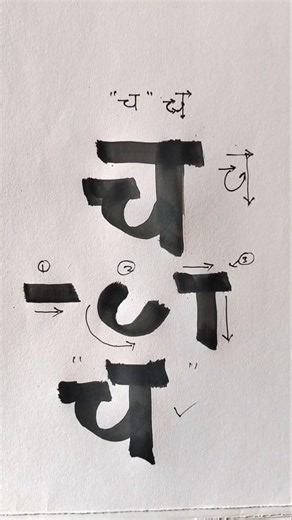 "च" च
च
① ② ③
"च"